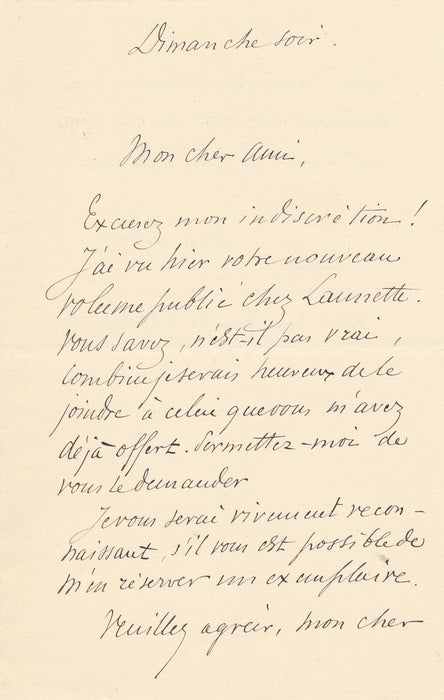 Dimanche soir.
Mon cher Ami,
Excusez mon indiscrétion !
J'ai vu hier votre nouveau
volume publié chez Launette.
Vous savez, n'est-il pas vrai,
combien je serais heureux de le
joindre à celui que vous m'avez
déjà offert. Permettez-moi de
vous le demander
Je vous serai vivement recon-
naissant, s'il vous est possible de
m'en réserver un exemplaire.
Veuillez agréer, mon cher